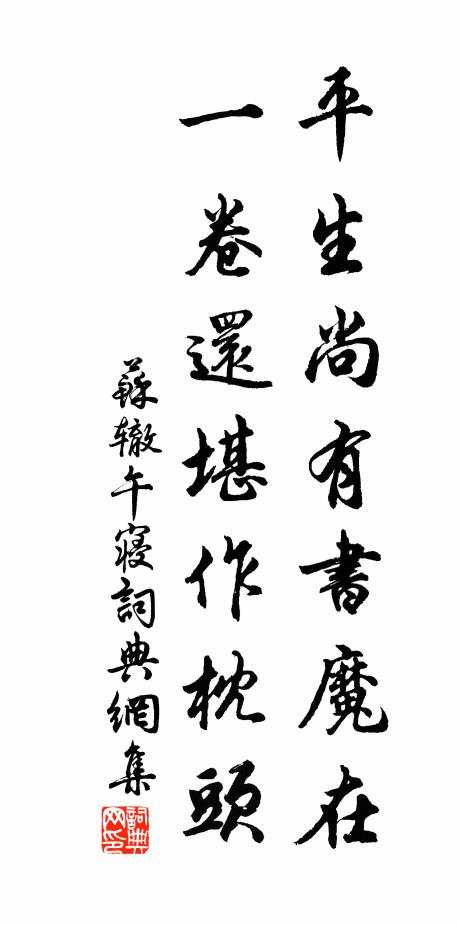 平生尚有書魔在
一卷還堪作枕頭
蘇辙午寢詞典網集
詞典
网印